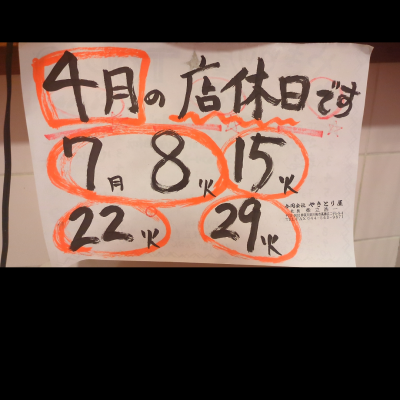 4月の店休日です
7月 8火 15火
22火 29火
合同会社 やきとり屋